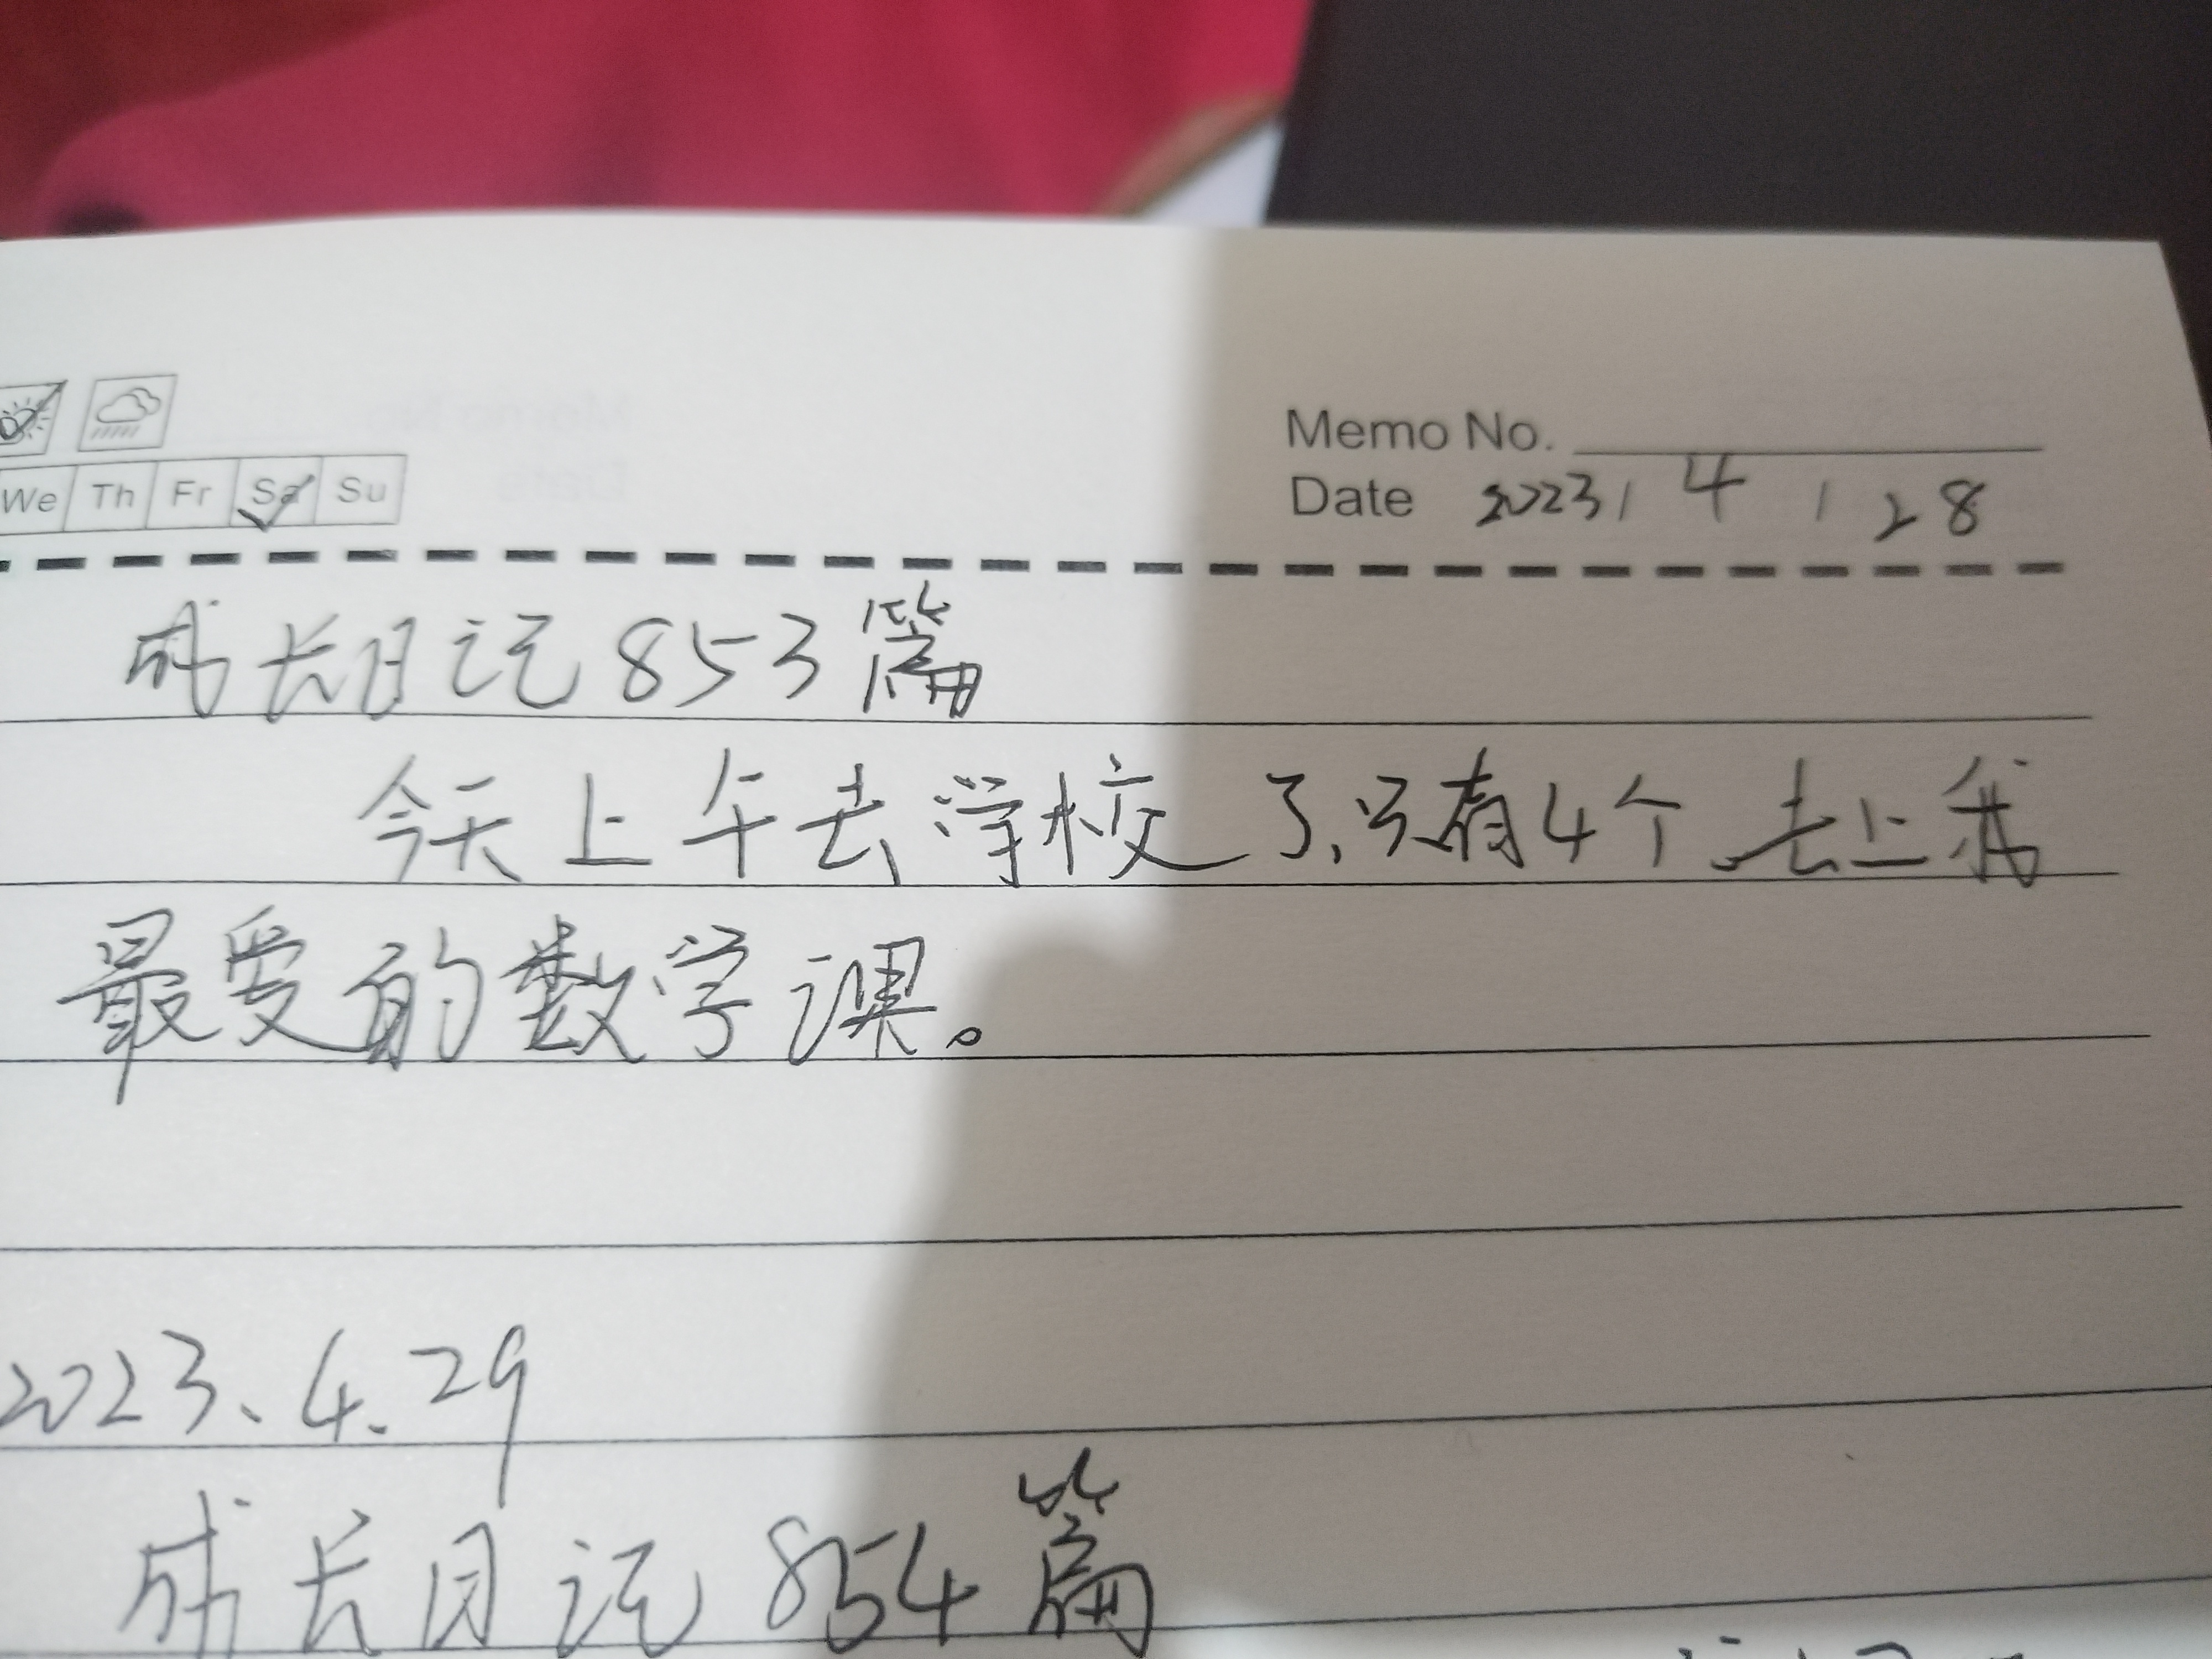 Memo No.
Date 2023 / 4 / 28
We Th Fr Sa Su
成长日记853篇
今天上午去学校了、只有4个、去上我
最爱的数学课。
2023、4、29
成长日记854篇